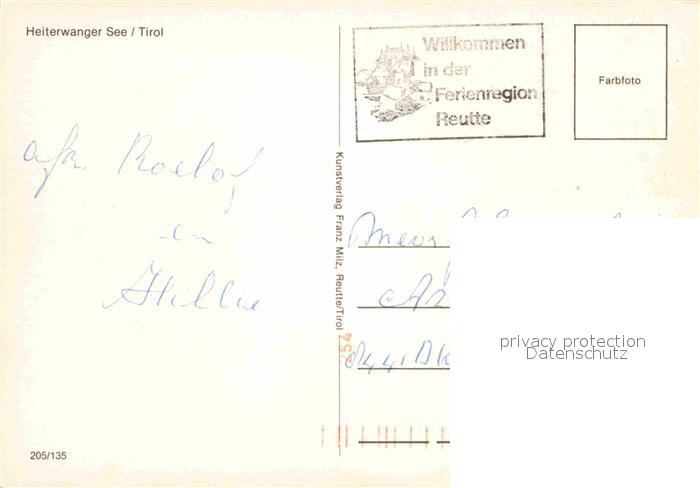 Heiterwanger See / Tirol
Willkommen
in der
Ferienregion
Reutte
Farbfoto
afz. Roelof
en
Hillie
Kunstverlag Franz Milz, Reutte/Tirol
254
Mevr
privacy protection
Datenschutz
205/135